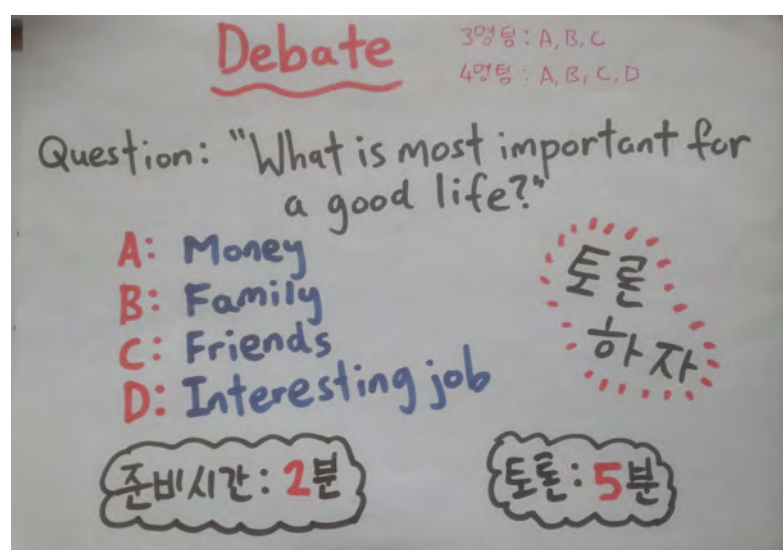 Debate
3명팀: A, B, C
4명팀: A, B, C, D
Question: "What is most important for
a good life?"
A: Money
B: Family
C: Friends
D: Interesting job
토론
하자
준비시간: 2분
토론: 5분